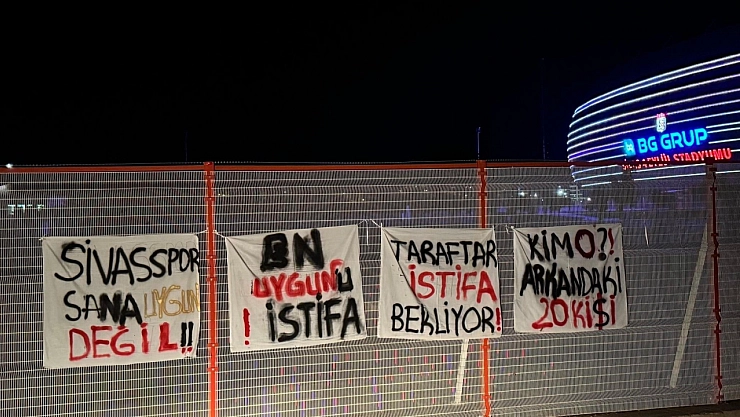 BG GRUP
EYLÜL STADYUMU
SİVASSPOR
SANA UYGUN
DEĞİL!!
EN
UYGUNU
! İSTİFA
TARAFTAR
İSTİFA
BEKLİYOR!
KİM O?!
ARKANDAKİ
20 KİŞİ